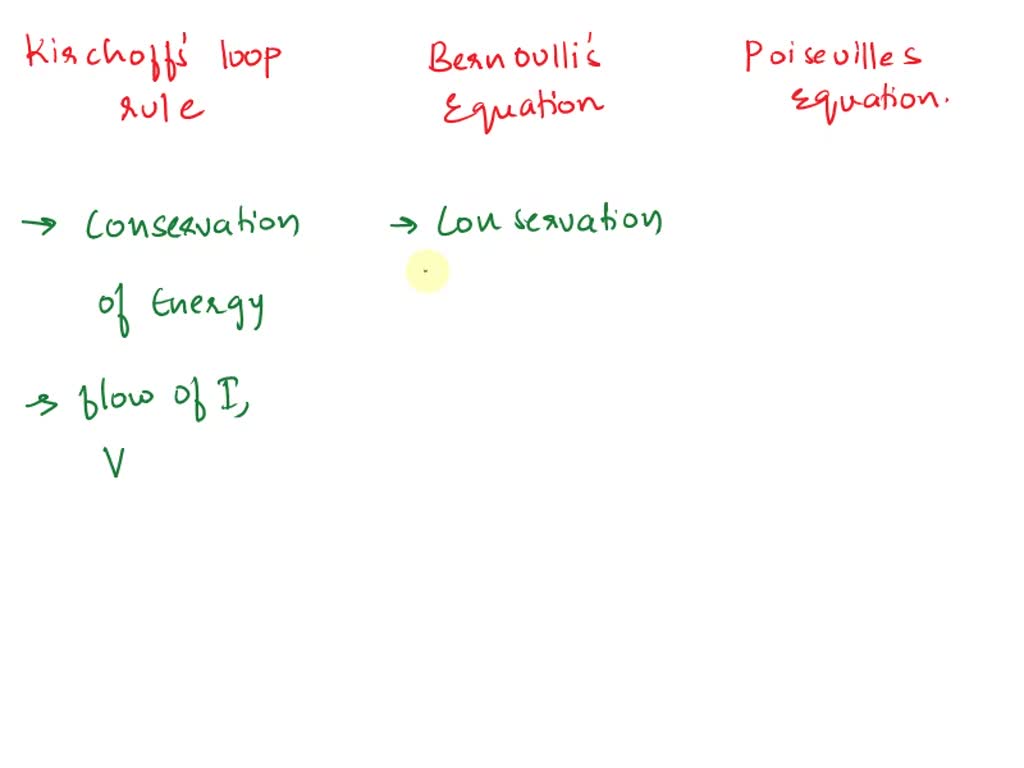 Kirchoff's loop rule
Bernoulli's Equation
Poisevilles Equation.
→ Conservation of Energy
→ flow of I, V
→ Conservation